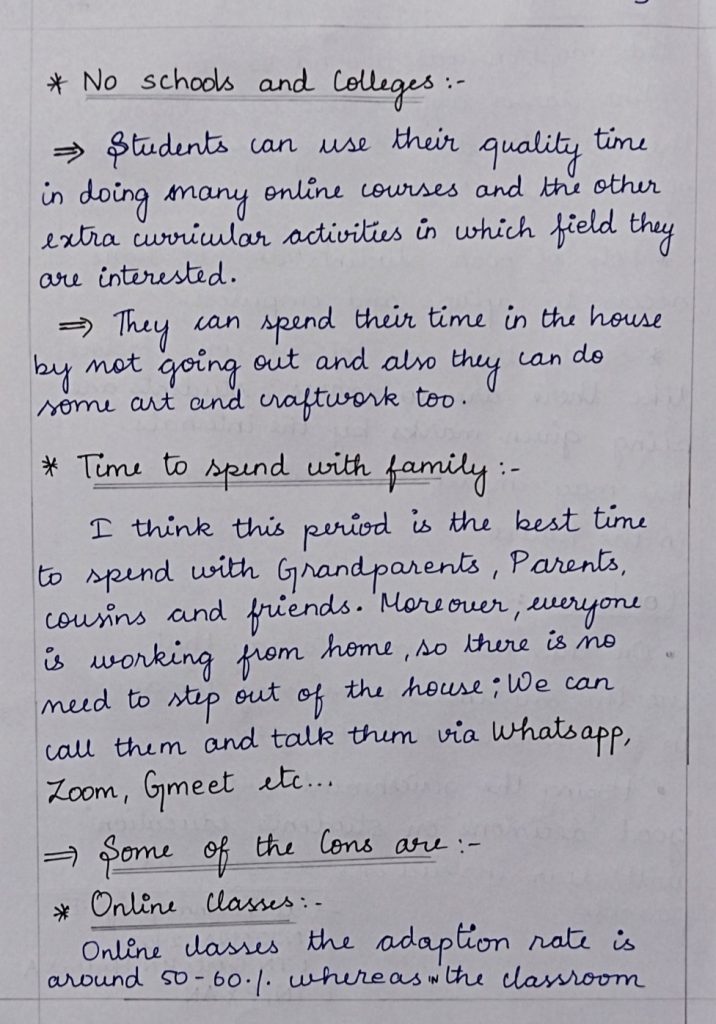 * No schools and Colleges :-
⇒ Students can use their quality time
in doing many online courses and the other
extra curricular activities in which field they
are interested.
⇒ They can spend their time in the house
by not going out and also they can do
some art and craftwork too.
* Time to spend with family :-
I think this period is the best time
to spend with Grandparents, Parents,
cousins and friends. Moreover, everyone
is working from home, so there is no
need to step out of the house; We can
call them and talk them via Whatsapp,
Zoom, Gmeet etc...
⇒ Some of the Cons are :-
* Online Classes :-
Online classes the adaption rate is
around 50-60% whereas in the classroom